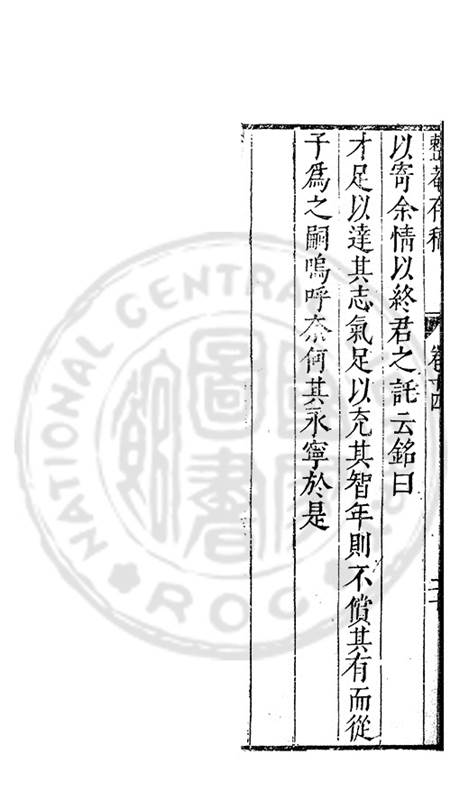 整菴存稿 卷十四
以寄余情以終君之託云銘曰
才足以達其志氣足以充其智年則不償其有而從
子為之嗣嗚呼奈何其永寧於是
NATIONAL CENTRAL
圖書
ROC